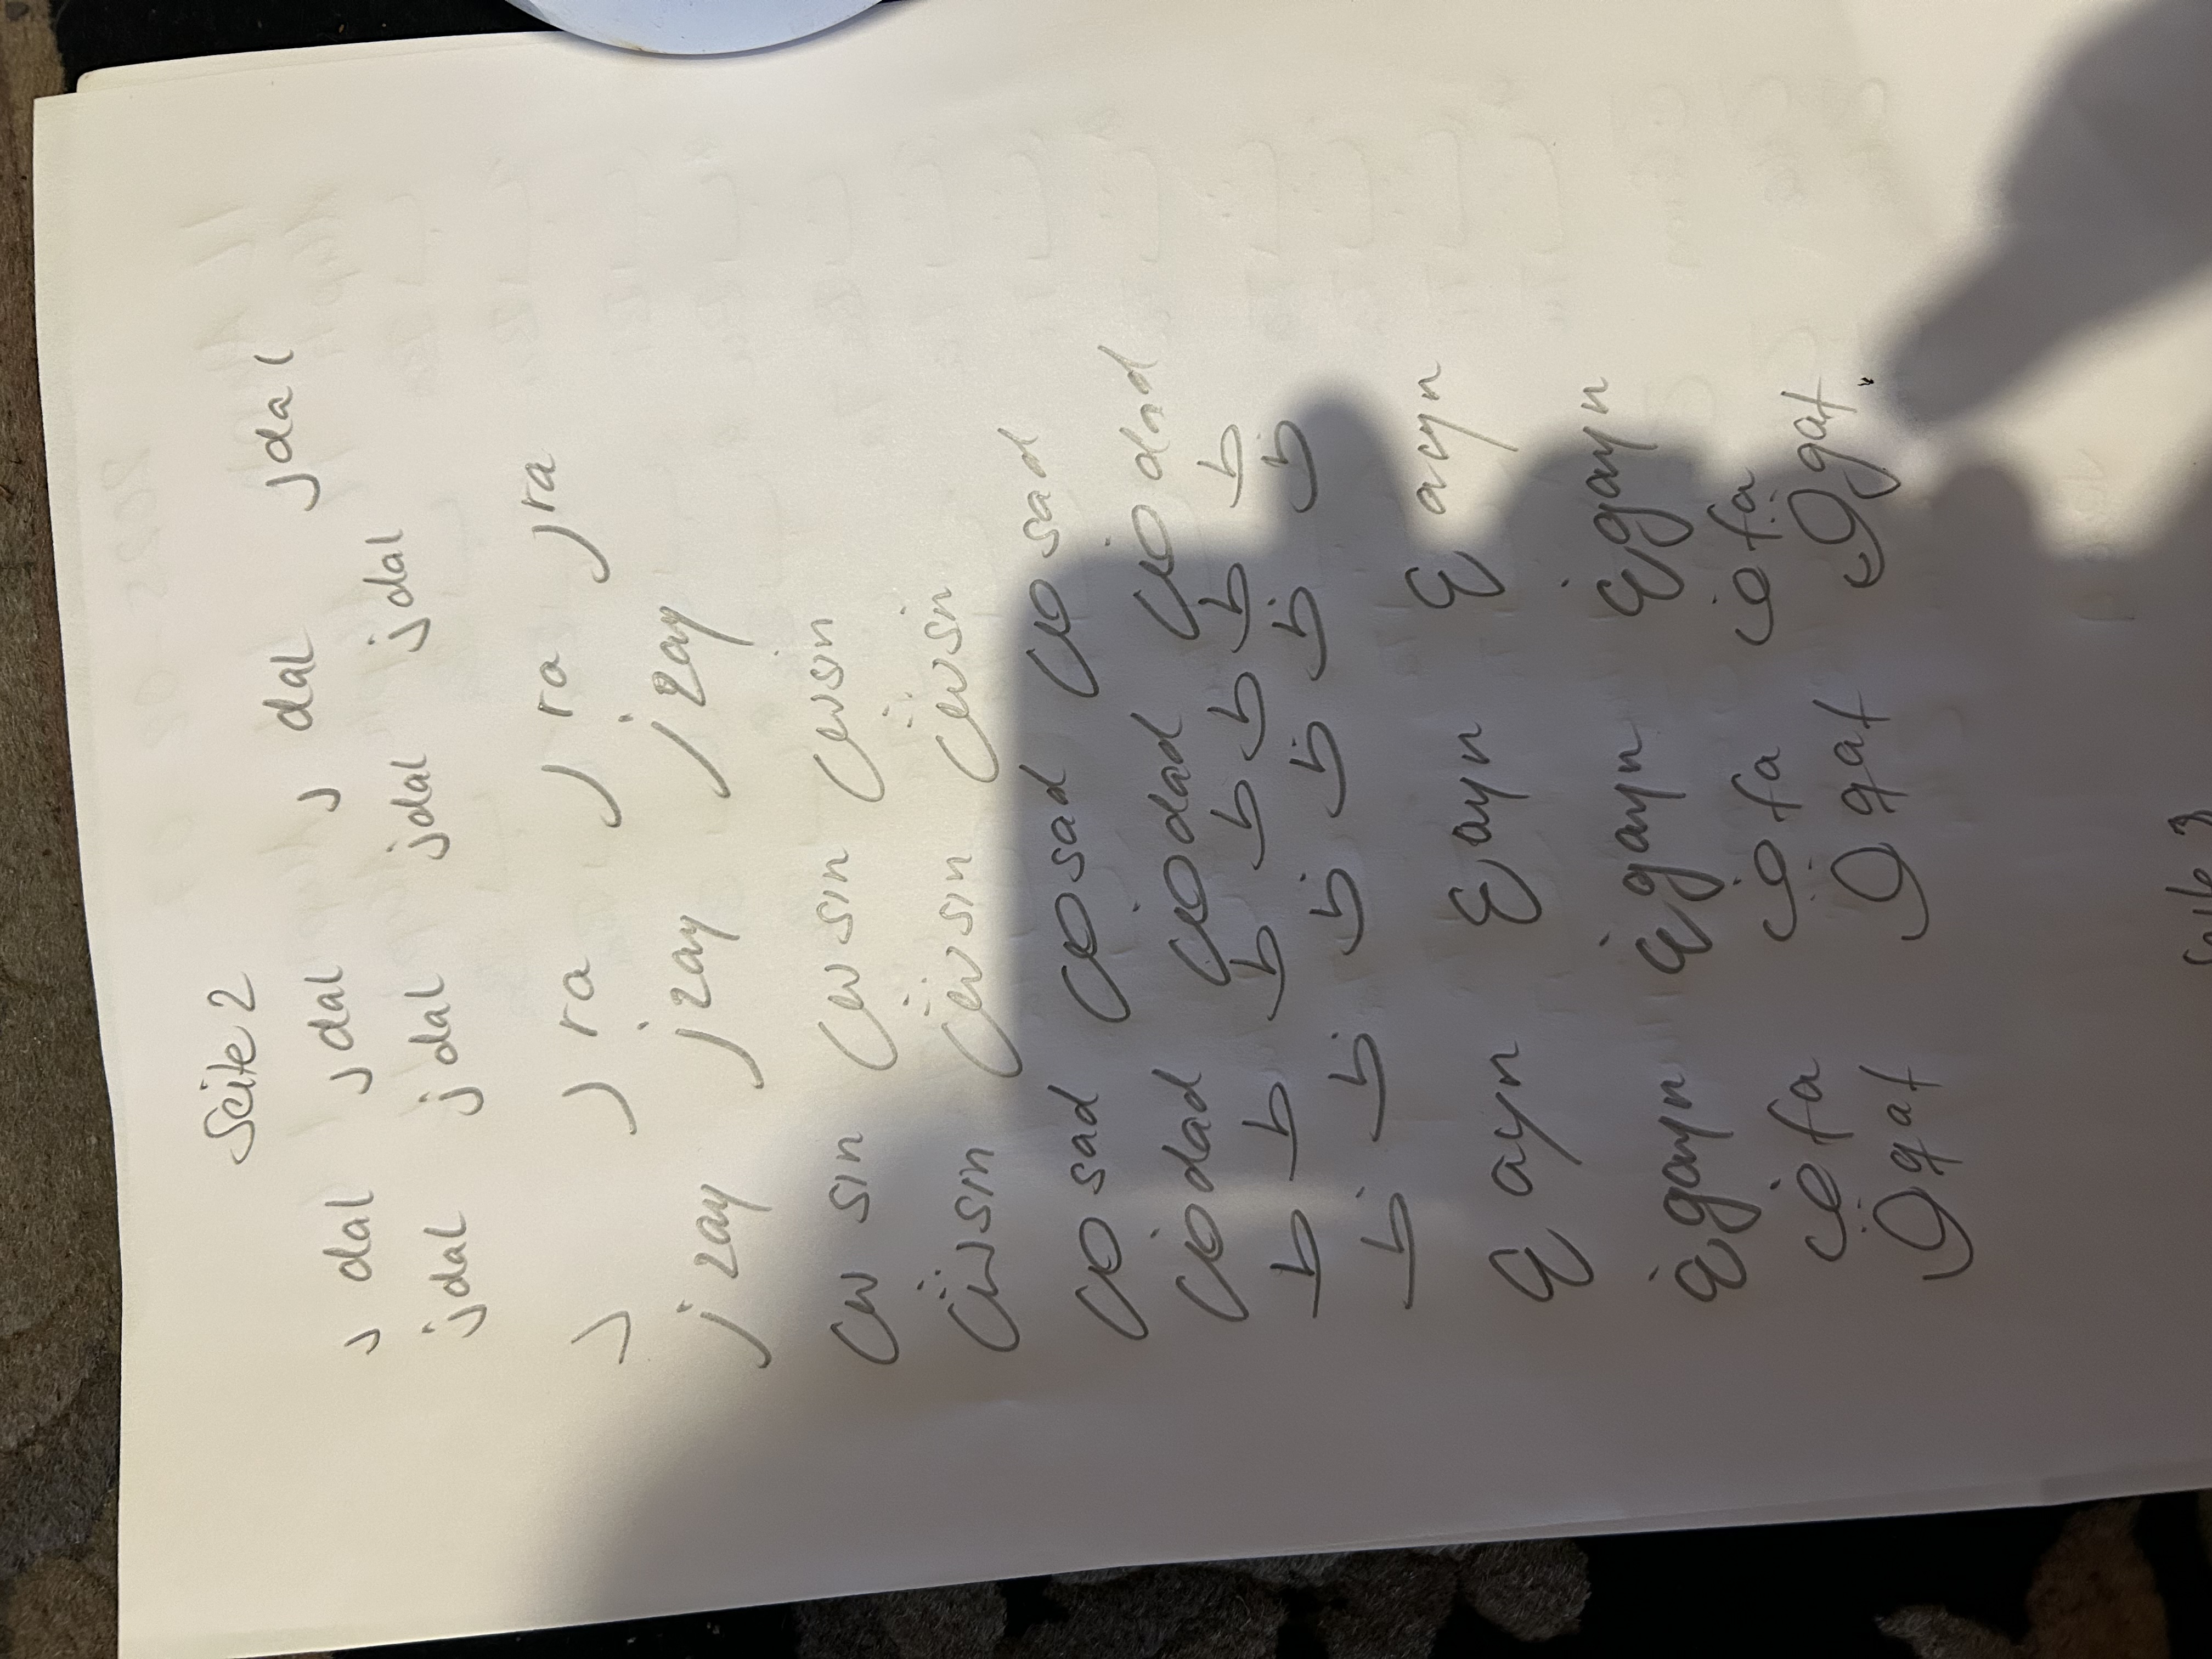 Seite 2
د dal د dal د dal د dal
ذ dal ذ dal ذ dal ذ dal
ر ر ra ر ra ر ra
ز zay ز zay ز zay
س sin س sin س sin
ش sin ش sin ش sin
ص sad ص sad ص sad
ض dad ض dad ض dad
ط ط ط ط ط ط ط
ظ ظ ظ ظ ظ ظ
ع ayn ع ayn ع ayn
غ gayn غ gayn غ gayn
ف fa ف fa ف fa
ق qaf ق qaf ق qaf